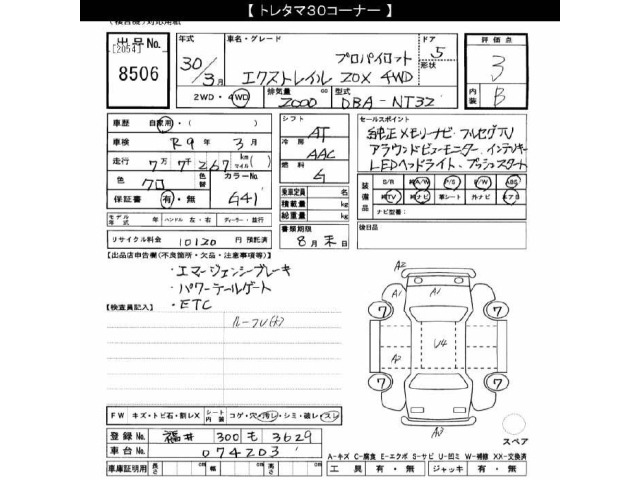 【 トレタマ30コーナー 】
(検苔機) 対応用紙
出品No.
[2054]
8506
年式
30/3月
車名・グレード
プロパイロット
エクストレイル 20X 4WD
ドア
5
形状
評価点
3
内装
B
2WD・4WD
排気量
2000
cc
型式
DBA-NT32
車歴
自家用・( )
車検
R9年3月
走行
7万7千267
km
マイル
色
クロ
色替
カラーNo.
G41
保証書
有・無
モデル年式
年
ハンドル 左・右
ディーラー・並行
リサイクル料金
10120
円 預託済
シフト
AT
冷房
AAC
燃料
G
乗車定員
名
積載量
kg
総重量
kg
書類期限
8月末日
セールスポイント
純正メモリーナビ・フルセグTV
アラウンドビューモニター、インテリキー
LEDヘッドライト、プッシュスタート
装備品
S/R
純A/W
P/S
P/W
ABS
純TV
純ナビ
革シート
外ナビ
エアB
ナビ型番:
後日品
【出品店申告欄(不良箇所・欠品・注意事項等)】
・エマージェンシーブレーキ
・パワーテールゲート
・ETC
【検査員記入】
ルーフU(大)
A2
A1
A1
7
7
U4
A2
7
7
A3
スペア
FW
キズ・トビ石・割レX
シート内装
コゲ・穴・汚レ・シミ・破レ・スレ
登録No.
福井 300 も 3629
車台No.
074203
車庫証明用
長さ
cm
幅
cm
高さ
cm
A-キズ C-腐食 E-エクボ S-サビ U-凹ミ W-補修 XX-交換済
工具
有・無
ジャッキ
有・無